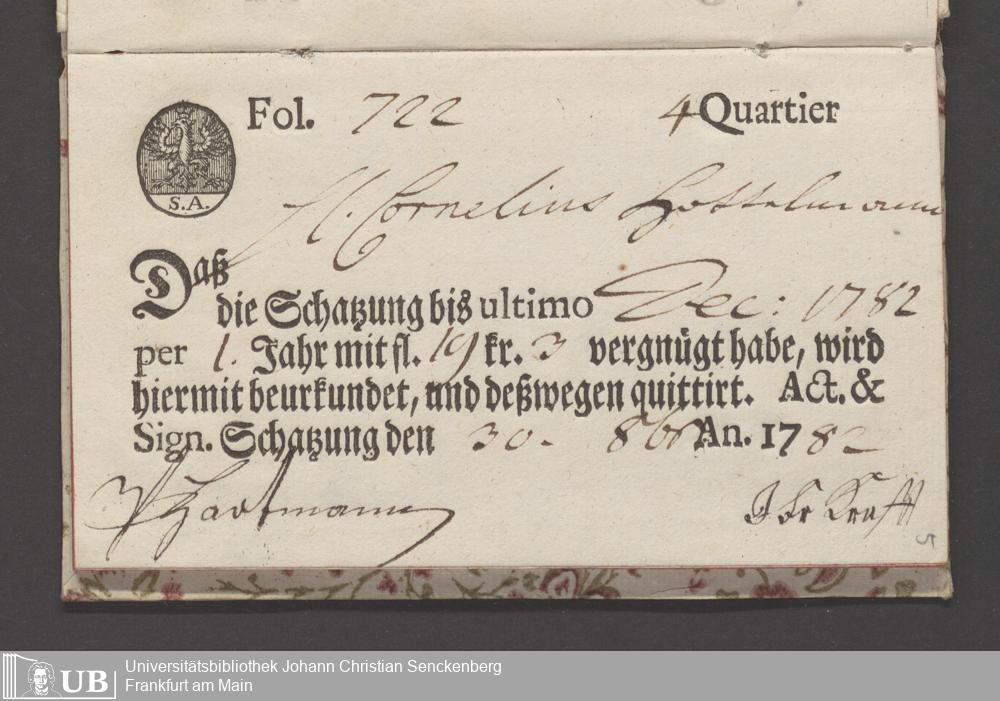 Fol. 722 4 Quartier
S.A.
H. Cornelius
Daß
die Schatzung bis ultimo Dec: 1782
per 1. Jahr mit fl. 19 kr. 3 vergnügt habe, wird
hiermit beurkundet, und deßwegen quittirt. Act. &
Sign. Schatzung den 30. 8br An. 1782
Hartmann
Krafft
5
UB
Universitätsbibliothek Johann Christian Senckenberg
Frankfurt am Main